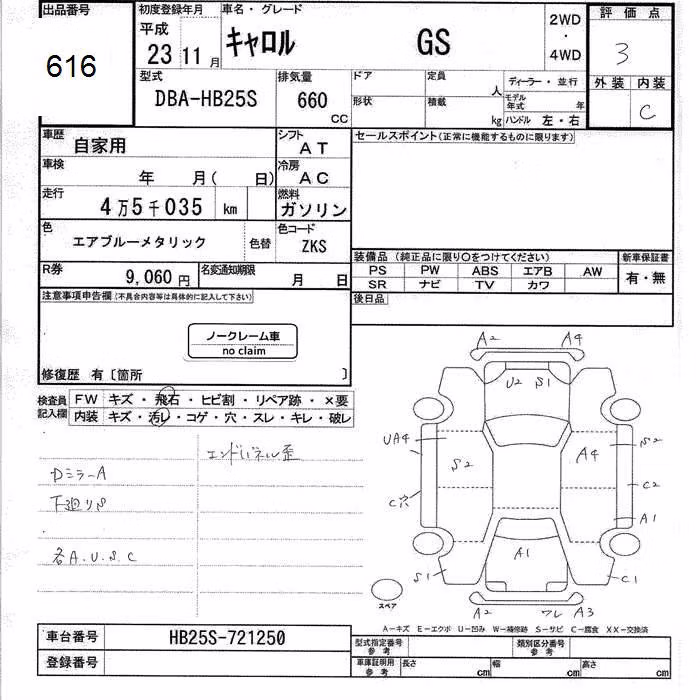 出品番号 初度登録年月 車名・グレード 2WD・4WD 評価点
616 平成 23 11月 キャロル GS 3
型式 排気量 ドア 定員 人 ディーラー・並行 外装 内装
DBA-HB25S 660 CC 形状 積載 kg モデル年式 年 ハンドル 左・右 C
車歴 自家用 シフト AT セールスポイント(正常に機能するものに限ります)
車検 年 月( 日) 冷房 AC
走行 4万5千035 km 燃料 ガソリン
色 エアブルーメタリック 色替 色コード ZKS
装備品 (純正品に限り○をつけてください) 新車保証書
PS PW ABS エアB AW 有・無
SR ナビ TV カワ
R券 9,060円 名変通知期限 月 日
後日品
注意事項申告欄(不具合内容等は具体的に記入して下さい)
ノークレーム車
no claim
修復歴 有〔箇所 〕
検査員記入欄 FW キズ・飛石・ヒビ割・リペア跡・×要
内装 キズ・汚レ・コゲ・穴・スレ・キレ・破レ
エンドパネル歪
DミラーA
下廻りS
各A.U.S.C
A2 A4
U2 S1
UA4 S2 A4 S2
C穴 C2
A1 A1
S1 C1
スペア
A2 ワレ A3
A-キズ E-エクボ U-凹み W-補修跡 S-サビ C-腐食 XX-交換済
車台番号 HB25S-721250 型式指定番号 参考 類別区分番号 参考
登録番号 車庫証明用 参考 長さ cm 幅 cm 高さ cm